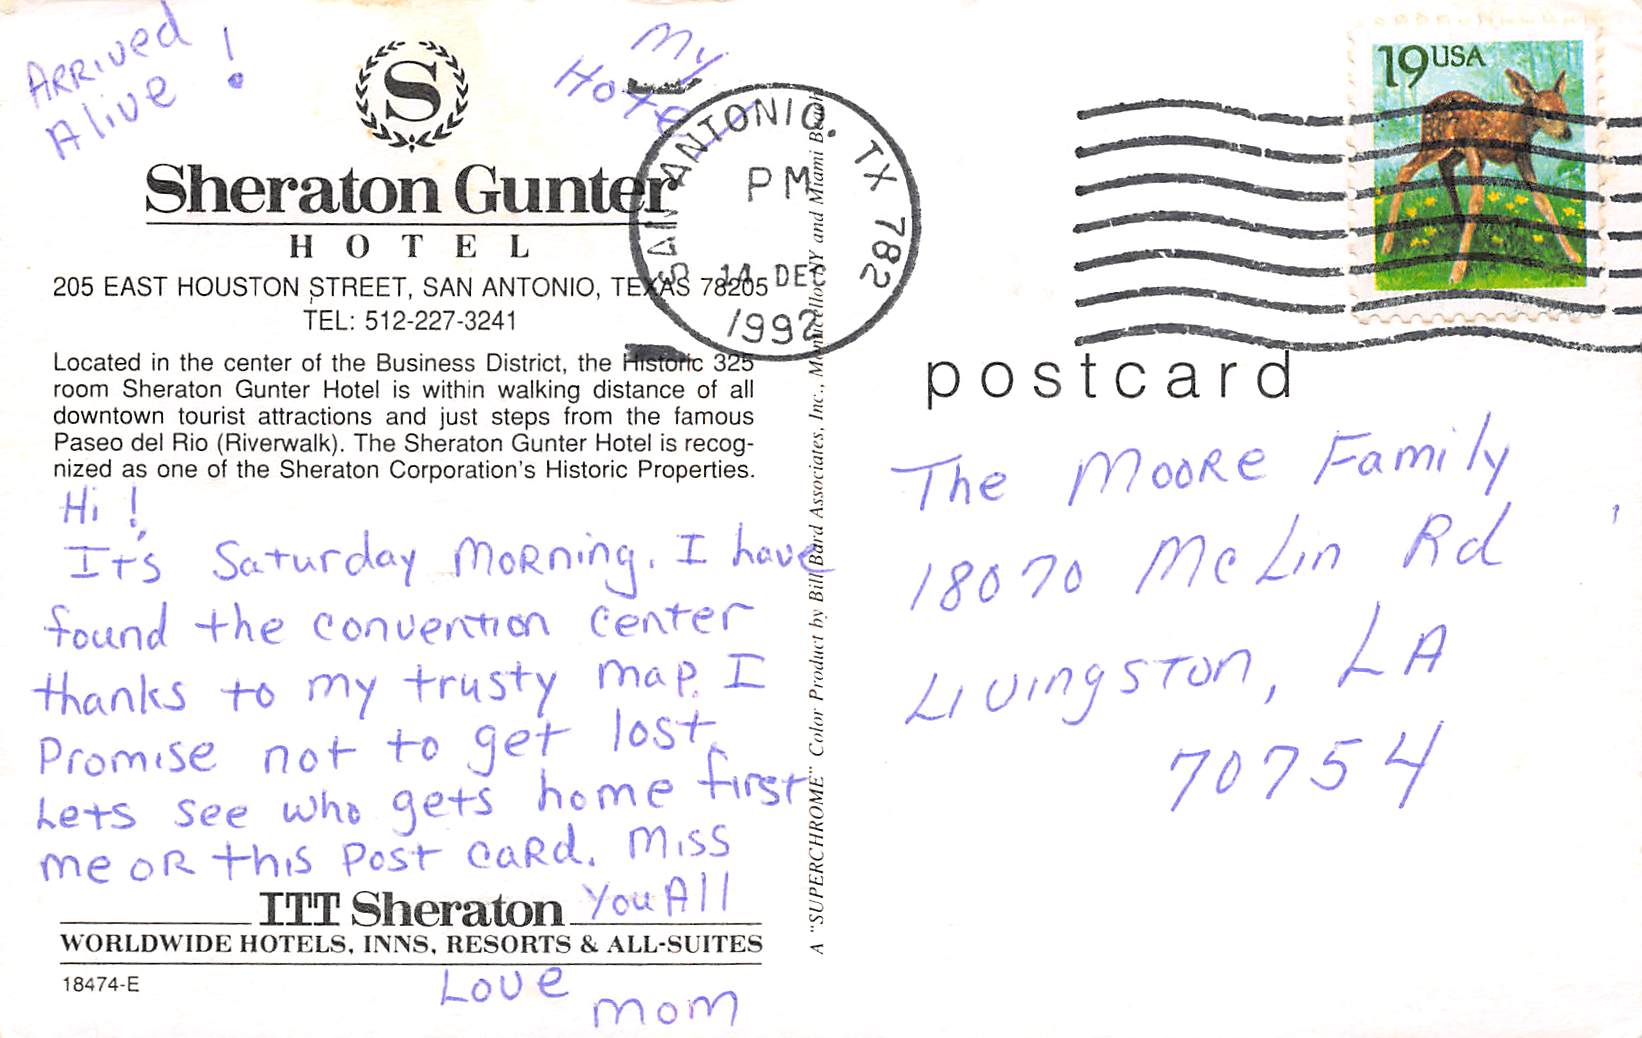 Arrived
Alive!
My
Hotel
S
Sheraton Gunter
HOTEL
205 EAST HOUSTON STREET, SAN ANTONIO, TEXAS 78205
TEL: 512-227-3241
Located in the center of the Business District, the Historic 325
room Sheraton Gunter Hotel is within walking distance of all
downtown tourist attractions and just steps from the famous
Paseo del Rio (Riverwalk). The Sheraton Gunter Hotel is recog-
nized as one of the Sheraton Corporation's Historic Properties.
Hi!
It's Saturday Morning. I have
found the convention center
thanks to my trusty map. I
Promise not to get lost.
Lets see who gets home first
me or this Post card. Miss
You All
ITT Sheraton
WORLDWIDE HOTELS, INNS, RESORTS & ALL-SUITES
18474-E
Love
Mom
A "SUPERCHROME" Color Product by Bill Bard Associates, Inc., Monticello, NY and Miami Beach
SAN ANTONIO, TX 782
PM
14 DEC
1992
19 USA
postcard
The Moore Family
18070 McLin Rd
Livingston, LA
70754